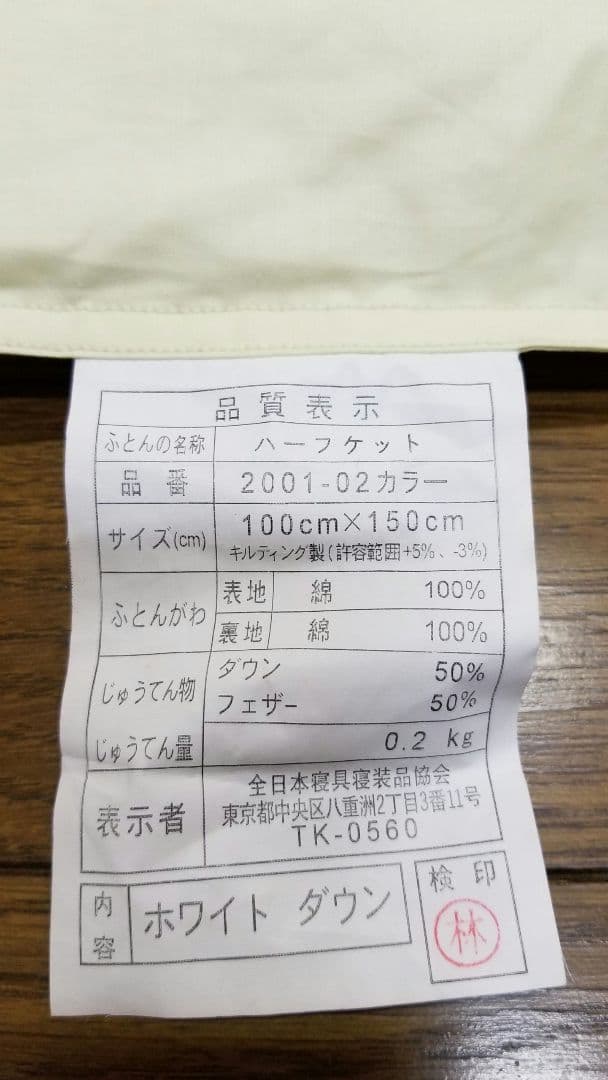 品質表示
ふとんの名称 ハーフケット
品番 2001-02カラー
サイズ(cm) 100cm×150cm
キルティング製(許容範囲+5%、-3%)
ふとんがわ 表地 綿 100%
裏地 綿 100%
じゅうてん物 ダウン 50%
フェザー 50%
じゅうてん量 0.2 kg
表示者 全日本寝具寝装品協会
東京都中央区八重洲2丁目3番11号
TK-0560
内容 ホワイト ダウン
検印
林